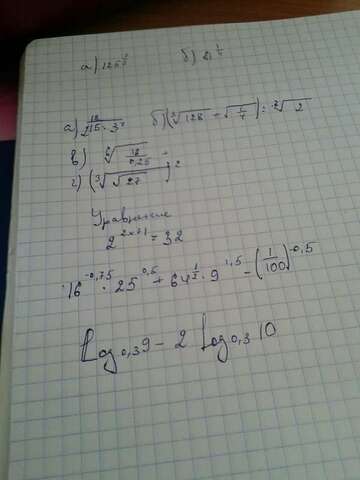 а)
б) 21^{1/4}
а)
б)(∛128 - √(1/4)) : ∛2
в) ∜(18/0,25)
г) (∛√27)²
Уравнение
2^{2x+1} = 32
16^{-0,75} · 25^{0,5} + 64^{1/2} · 9^{1,5} - (1/100)^{-0,5}
Log_{0,3}9 - 2 Log_{0,3}10